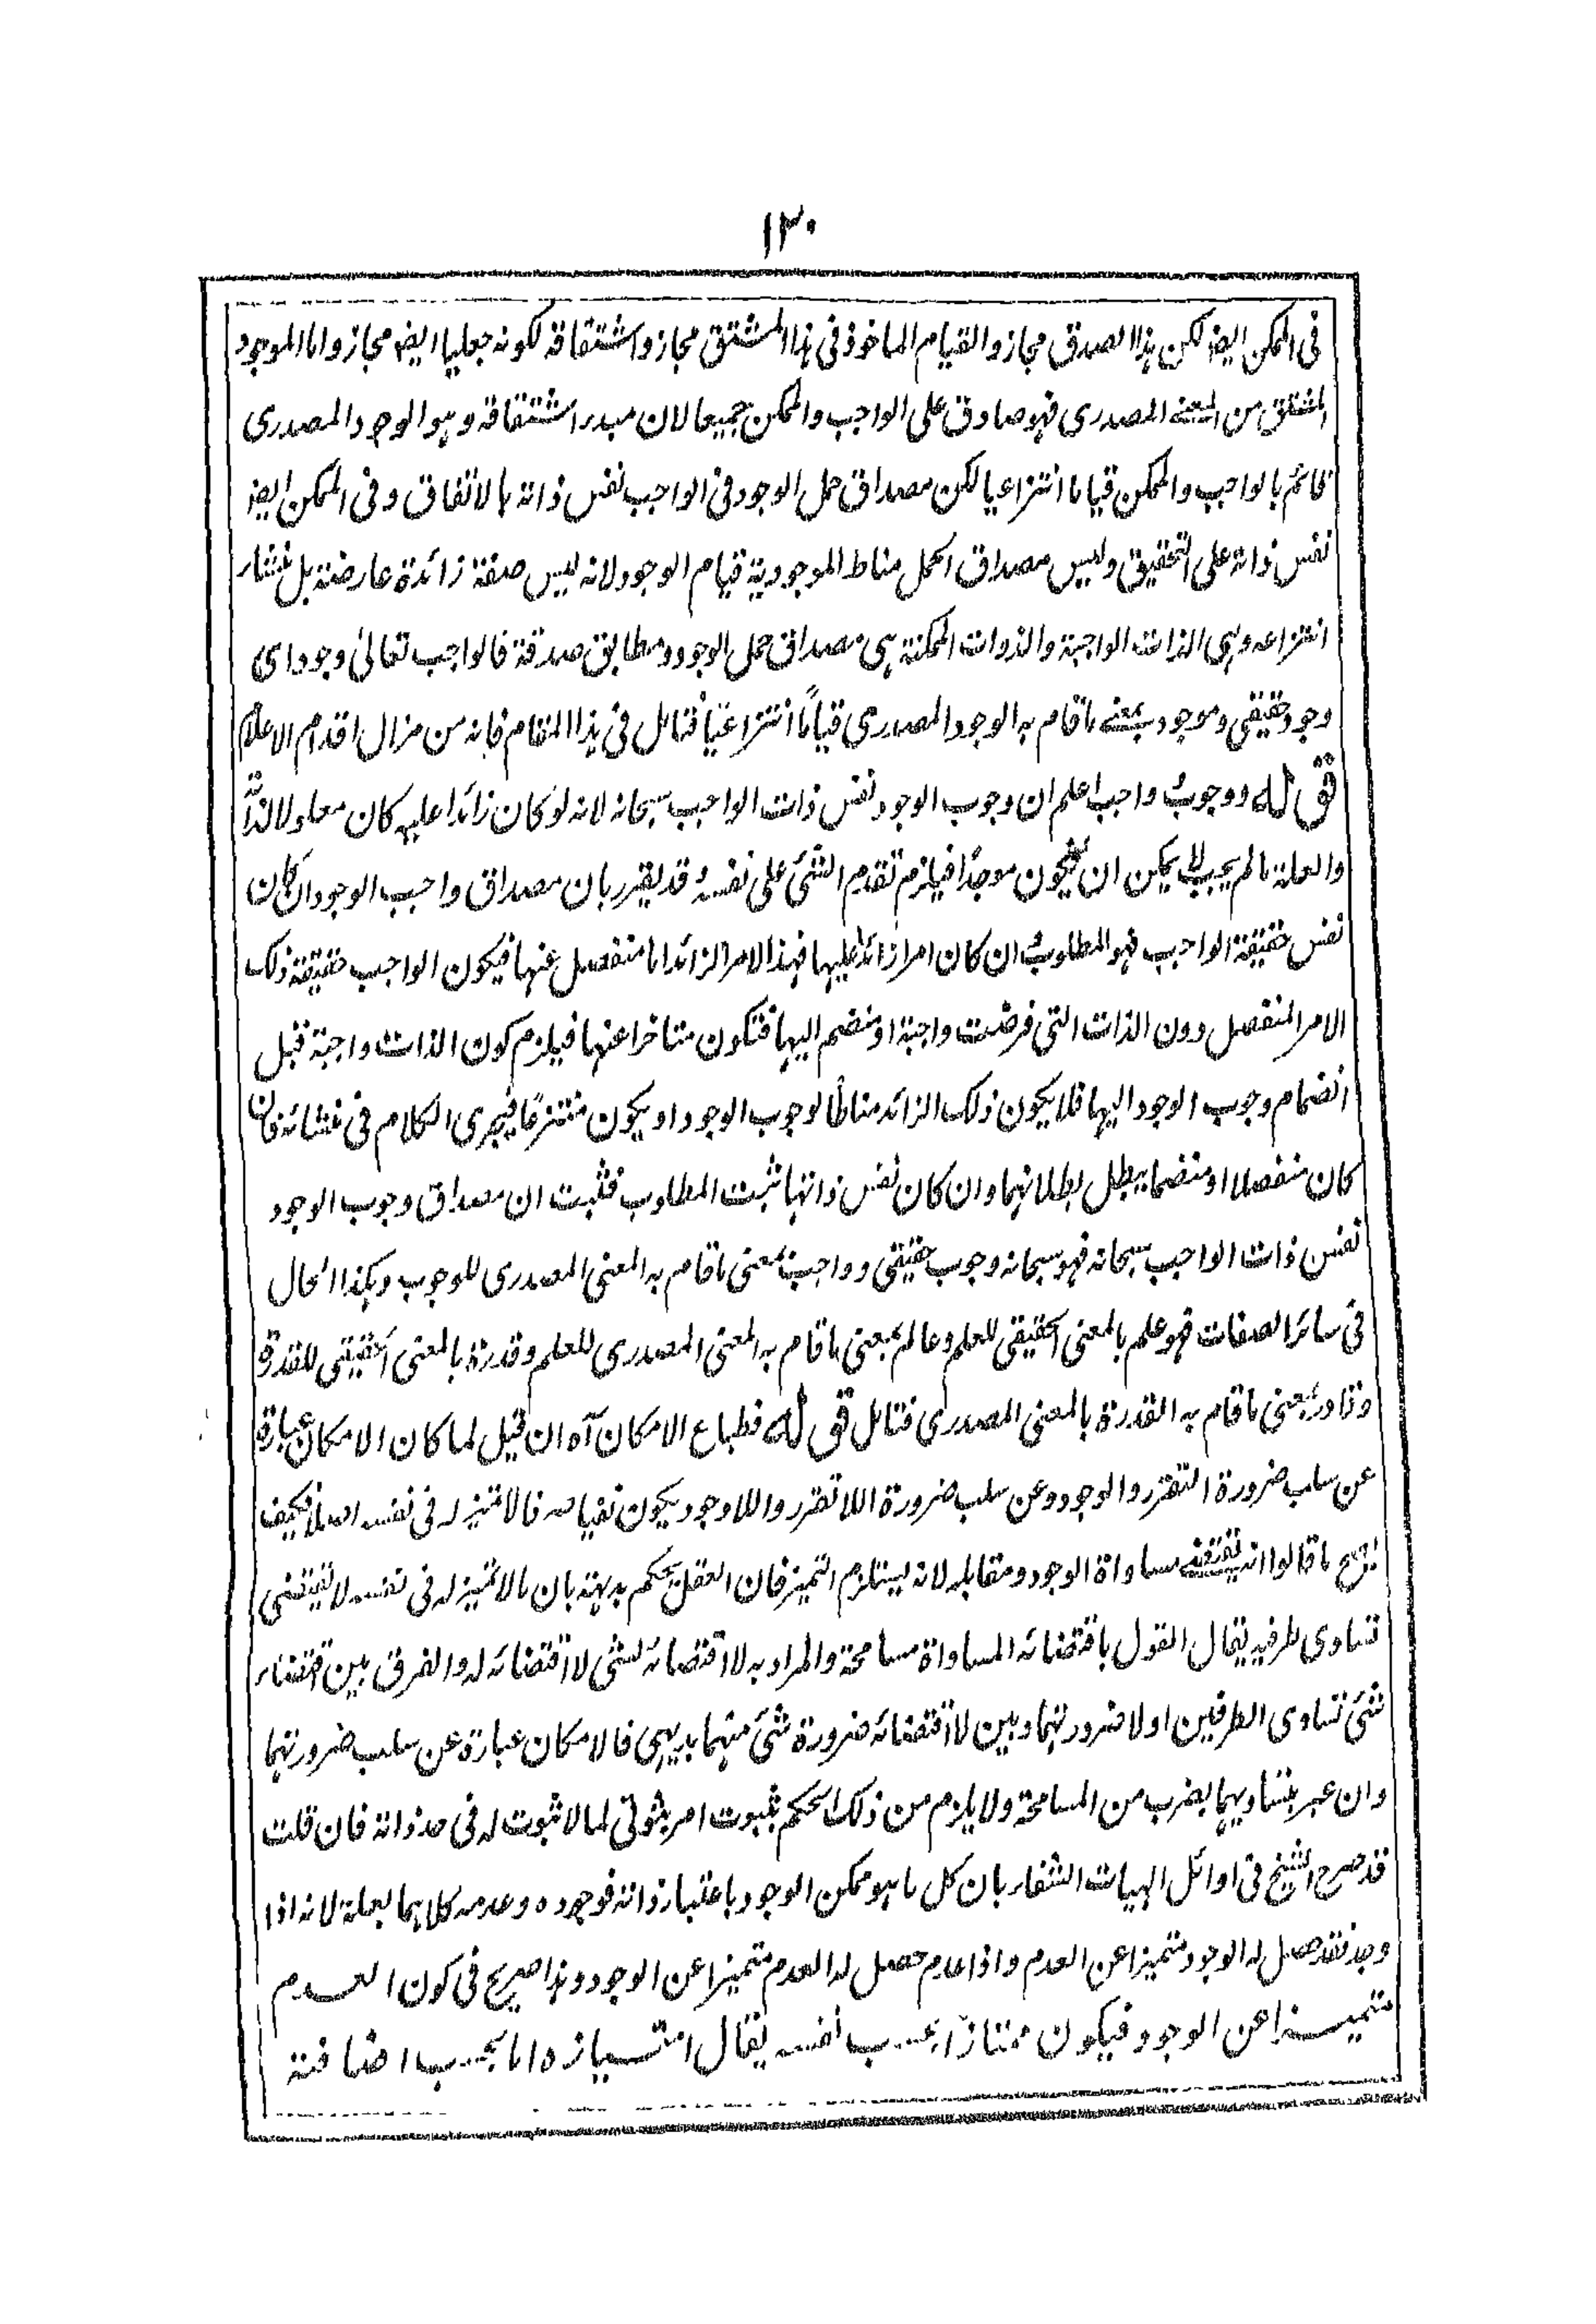 ١٣٠
فى الممكن ايضا لكن هذا الصدق مجاز والقيام الماخوذ فى هذا المشتق مجاز واشتقاقه لكونه جعليا ايضا مجاز واما الموجود
المشتق من المعنى المصدرى فهو صادق على الواجب والممكن جميعا لان مبدء اشتقاقه وهو الوجود المصدرى
قائم بالواجب والممكن قياما انتزاعيا لكن مصداق حمل الوجود فى الواجب نفس ذاته بالاتفاق وفى الممكن ايضا
نفس ذاته على التحقيق وليس مصداق الحمل مناط الموجودية قيام الوجود لانه ليس صفة زائدة عارضة بل منشاء
انتزاعه وهى الذات الواجبة والذوات الممكنة هى مصداق حمل الوجود ومطابق صدقه فالواجب تعالى وجود اى
وجود حقيقى وموجود بمعنى ما قام به الوجود المصدرى قياماً انتزاعيّا فتامل فى هذا المقام فانه من مزال اقدام الاعلام
قوله ووجوبه واجب اعلم ان وجوب الوجود نفس ذات الواجب سبحانه لانه لو كان زائدا عليه كان معلولا لذاته
والعلة ما لم يجب لا يمكن ان يكون موجدا فيلزم تقدم الشئ على نفسه وقد يقرر بان مصداق واجب الوجود ان كان
نفس حقيقة الواجب فهو المطلوب وان كان امرا زائدا عليها فهذا الامر الزائد اما منفصل عنها فيكون الواجب حقيقة ذلك
الامر المنفصل دون الذات التى فرضت واجبة او منضم اليها فتكون متاخرا عنها فيلزم كون الذات واجبة قبل
انضمام وجوب الوجود اليها فلا يكون ذلك الزائد مناطا لوجوب الوجود او يكون منتزعا فيجرى الكلام فى منشائه فان
كان منفصلا او منضما يبطل بطلانهما وان كان نفس ذاتها ثبت المطلوب فثبت ان مصداق وجوب الوجود
نفس ذات الواجب سبحانه فهو سبحانه وجوب حقيقى وواجب بمعنى ما قام به المعنى المصدرى للوجوب وهكذا الحال
فى سائر الصفات فهو علم بالمعنى الحقيقى للعلم وعالم بمعنى ما قام به المعنى المصدرى للعلم وقدرة بالمعنى الحقيقى للقدرة
وقادر بمعنى ما قام به القدرة بالمعنى المصدرى فتامل قوله فطباع الامكان آه ان قيل لما كان الامكان عبارة
عن سلب ضرورة التقرر والوجود وعن سلب ضرورة اللاتقرر واللاوجود يكون نفيا صرفا لا تميز له فى نفسه اصلا فكيف
يصح ما قالوا انه يقتضى مساواة الوجود ومقابله لانه يستلزم التميز فان العقل يحكم بديهة بان ما لا تميز له فى نفسه لا يقتضى
تساوى طرفيه يقال القول باقتضائه المساواة مسامحة والمراد به لا اقتضائه لشئ لا اقتضائه له والفرق بين اقتضاء
شئ تساوى الطرفين او لا ضرورتهما وبين لا اقتضائه ضرورة شئ منهما بديهى فالامكان عبارة عن سلب ضرورتهما
وان عبر بتساويهما بضرب من المسامحة ولا يلزم من ذلك الحكم بثبوت امر ثبوتى لما لا ثبوت له فى حد ذاته فان قلت
قد صرح الشيخ فى اوائل الهيات الشفاء بان كل ما هو ممكن الوجود باعتبار ذاته فوجوده وعدمه كلاهما بعلة لانه اذا
وجد فقد حصل له الوجود متميزا عن العدم واذا عدم حصل له العدم متميزا عن الوجود وهذا صريح فى كون العدم
متميزا عن الوجود فيكون ممتازا بحسب نفسه يقال امتيازه انما بحسب اضافة